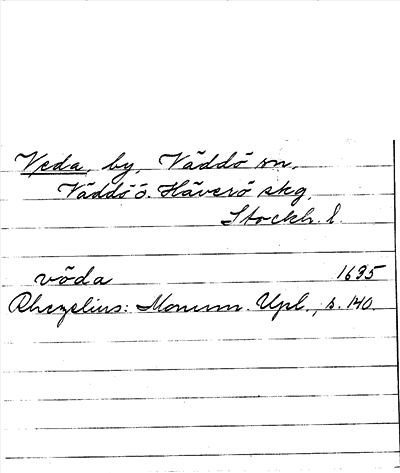 Veda, by, Väddö sn.
Väddö o. Häverö skg.
Stockh. l.
vöda 1635
Rhezelius: Monum. Upl., s. 140.